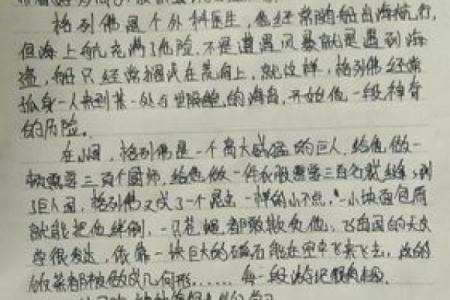 格列佛是个外科医生,他经常随船出海航行,
但海上航充满了危险,不是遭遇风暴就是遇到海
盗,船只经常搁浅在荒岛上,就这样,格列佛经常
孤身一人来到某一处与世隔绝的海岛,开始他一段神奇
的历险。
在小国,格列佛是一个高大威猛的巨人,给他做一
顿需要三百个厨师,给他做一件衣服需要三百名裁缝;到
了巨人国,格列佛又成了一个昆虫一样的小不点,一小块面包屑
就能把他绊倒,一只苍蝇都敢欺负他,飞岛国的天文
学很发达,依靠一块巨大的磁石能在空中飞来飞去,这的
的饭菜都被做成几何形……每一段游记都